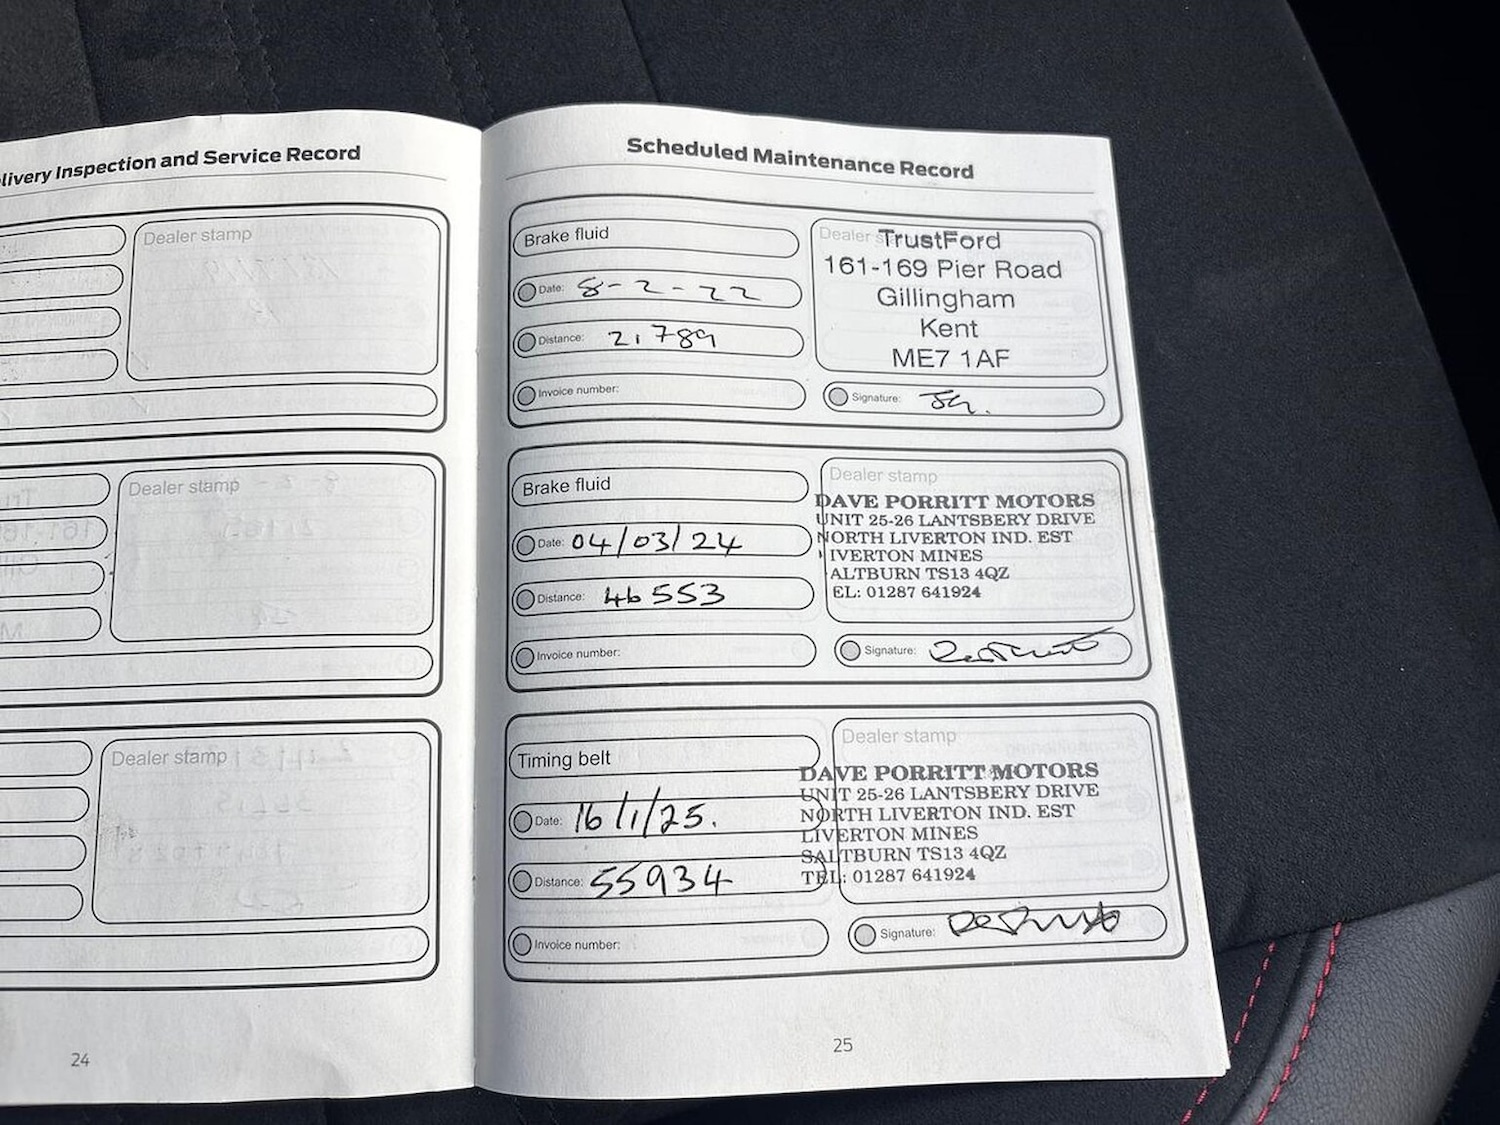 livery Inspection and Service Record
Dealer stamp
Dealer stamp
Dealer stamp
24
Scheduled Maintenance Record
Brake fluid
Date: 8-2-22
Distance: 21789
Invoice number:
Dealer
TrustFord
161-169 Pier Road
Gillingham
Kent
ME7 1AF
Signature:
Brake fluid
Date: 04/03/24
Distance: 46553
Invoice number:
Dealer stamp
DAVE PORRITT MOTORS
UNIT 25-26 LANTSBERY DRIVE
NORTH LIVERTON IND. EST
IVERTON MINES
ALTBURN TS13 4QZ
EL: 01287 641924
Signature:
Timing belt
Date: 16/1/25.
Distance: 55934
Invoice number:
Dealer stamp
DAVE PORRITT MOTORS
UNIT 25-26 LANTSBERY DRIVE
NORTH LIVERTON IND. EST
LIVERTON MINES
SALTBURN TS13 4QZ
TEL: 01287 641924
Signature:
25